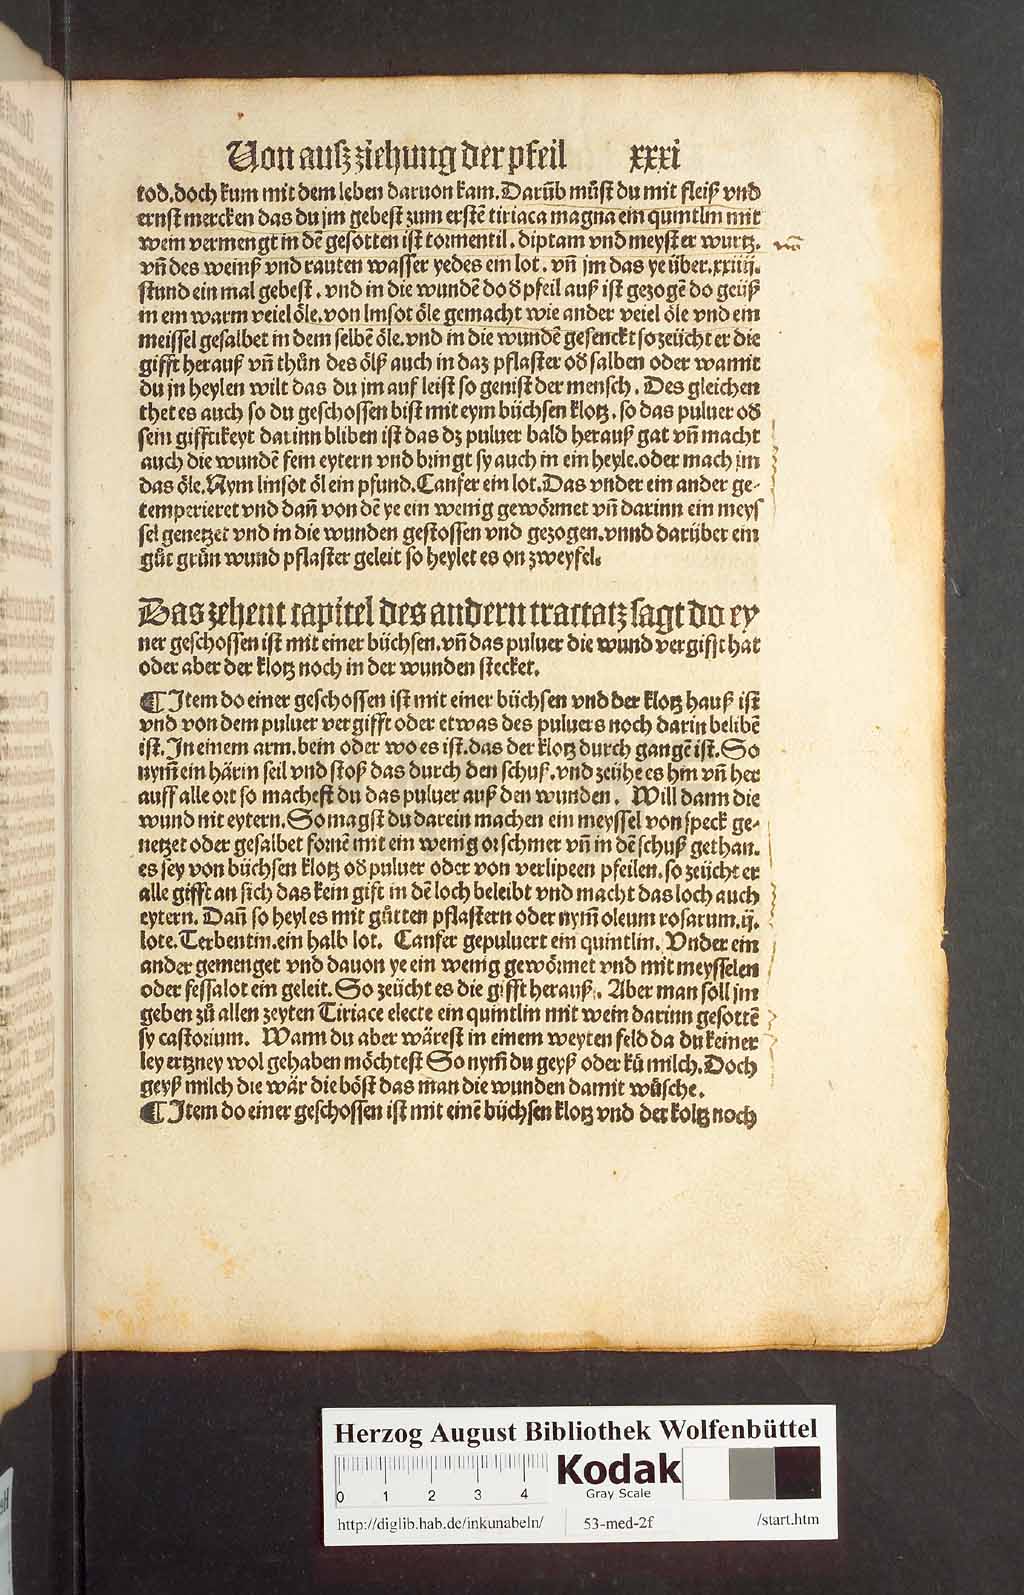 Von auſzziehung der pfeil xxxi
tod. doch kum mit dem leben daruon kam. Darũb můſt du mit fleiß vnd
ernſt mercken das du jm gebeſt zum erſtẽ tiriaca magna ein quintlin mit
wein vermengt in dẽ geſotten iſt tormentil. diptam vnd meyſter wurtz.
vñ des weinß vnd rauten waſſer yedes ein lot. vñ jm das ye über .xxiiij.
ſtund ein mal gebeſt. vnd in die wundẽ do ď pfeil auß iſt gezogẽ do geüß
in ein warm veiel öle. von linſot öle gemacht wie ander veiel öle vnd ein
meiſſel geſalbet in dem ſelbẽ öle. vnd in die wundẽ geſenckt ſo zeücht er die
gifft herauß vñ thůn des ölß auch in daz pflaſter oď ſalben oder wamit
du jn heylen wilt das du jm auf leiſt ſo geniſt der menſch. Des gleichen
thet es auch ſo du geſchoſſen biſt mit eym büchſen klotz. ſo das puluer oď
ſein gifftikeyt darinn bliben iſt das dz puluer bald herauß gat vñ macht
auch die wundẽ fein eytern vnd bringt ſy auch in ein heyle. oder mach im
das öle. Nym linſot öl ein pfund. Canfer ein lot. Das vnder ein ander ge-
temperieret vnd dañ von dẽ ye ein wenig gewörmet vñ darinn ein meyſ
ſel genetzet vnd in die wunden geſtoſſen vnd gezogen. vnnd darüber ein
gůt grün wund pflaſter geleit ſo heylet es on zweyfel.
Das zehent capitel des andern tractatz ſagt do ey
ner geſchoſſen iſt mit einer büchſen. vñ das puluer die wund vergifft hat
oder aber der klotz noch in der wunden ſtecket.
¶ Item do einer geſchoſſen iſt mit einer büchſen vnd der klotz hauß iſt
vnd von dem puluer vergifft oder etwas des puluers noch darin belibẽ
iſt. In einem arm. bein oder wo es iſt. das der klotz durch gangẽ iſt. So
nym̃ ein härin ſeil vnd ſtoß das durch den ſchuß. vnd zeühe es hin vñ her
auff alle ort ſo macheſt du das puluer auß den wunden. Will dann die
wund nit eytern. So magſt du darein machen ein meyſſel von ſpeck ge-
netzet oder geſalbet fornẽ mit ein wenig orſchmer vñ in dẽ ſchuß gethan.
es ſey von büchſen klotz oď puluer oder von verlipeen pfeilen. ſo zeücht er
alle gifft an ſich das kein gift in dẽ loch beleibt vnd macht das loch auch
eytern. Dañ ſo heyl es mit gůtten pflaſtern oder nym̃ oleum roſarum. ij.
lote. Terbentin. ein halb lot. Canfer gepuluert ein quintlin. Vnder ein
ander gemenget vnd dauon ye ein wenig gewörmet vnd mit meyſſelen
oder feſſalot ein geleit. So zeücht es die gifft herauß. Aber man ſoll jm
geben zů allen zeyten Tiriace electe ein quintlin mit wein darinn geſottẽ
ſy caſtorium. Wann du aber wäreſt in einem weyten feld da du keiner
ley ertzney wol gehaben möchteſt So nym̃ du geyß oder ků milch. Doch
geyß milch die wär die böſt das man die wunden damit wůſche.
¶ Item do einer geſchoſſen iſt mit einẽ büchſen klotz vnd der koltz noch
Herzog August Bibliothek Wolfenbüttel
0 1 2 3 4
Kodak
Gray Scale
http://diglib.hab.de/inkunabeln/ 53-med-2f /start.htm